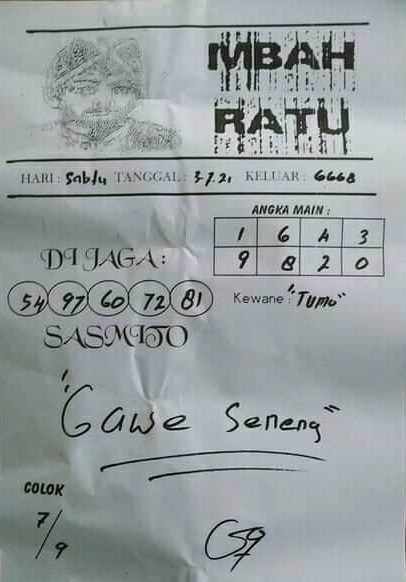 MBAH
RATU
HARI : Sabtu TANGGAL : 3.7.21 KELUAR : 6668
ANGKA MAIN :
1 6 4 3
9 8 2 0
DI JAGA :
54 97 60 72 81
Kewane : "Tumo"
SASMITO
"Gawe Seneng"
COLOK
7/9